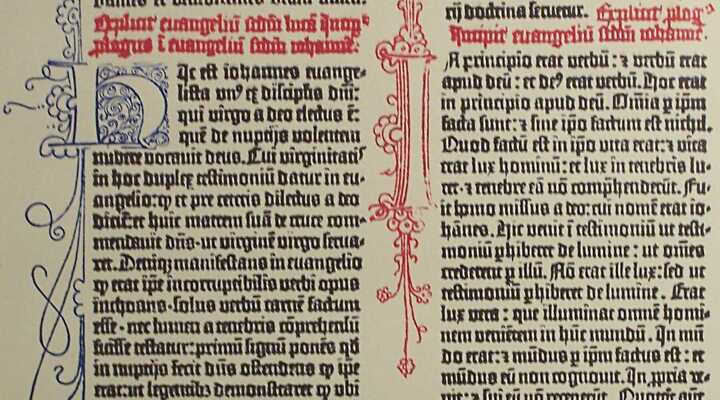 Explicit euangeliū scdm̄ lucā Incipit
plogus ī euangeliū scdm̄ iohannē.
Hic est iohannes euange-
lista vnꝰ ex discipl'is dn̄i:
qui virgo a deo electus ē:
quē de nuptijs volentem
nubere vocauit deus. Cui virginitatis
in hoc duplex testimoniū datur in eu-
angelio: ꝙ et pre ceteris dilectus a deo
dicit̄: et huic matrem suā de cruce com-
mendauit dn̄s· ut virginē virgo serua-
ret. Deniqꝫ manifestans in euangelio
ꝙ erat ip̄e incorruptibilis verbi opus
inchoans· solus verbū carnē factum
esse· nec lumen a tenebris cōprehensū
fuisse testatur: primū signū ponēs qd̄
in nuptijs fecit dn̄s ostendens ꝙ ip̄e
erat: ut legentibꝫ demonstraret ꝙ ubi
rij doctrina seruetur. Explicit plogꝰ
Incipit euangeliū scdm̄ iohannē.
In principio erat verbū: ⁊ verbū erat
apud deū: et deꝰ erat verbū. Hoc erat
in principio apud deū. Om̄ia ꝑ ip̄m
facta sunt: ⁊ sine ip̄o factum est nichil.
Quod factū est in ip̄o vita erat: ⁊ vita
erat lux hominū: et lux in tenebris lu-
cet· ⁊ tenebre eā nō cōprehenderūt. Fu-
it homo missus a deo: cui nomē erat io-
hānes. Hic venit ī testimoniū ut testi-
moniū ꝑhiberet de lumine: ut om̄es
crederent ꝑ illū. Nō erat ille lux: sed ut
testimoniū ꝑhiberet de lumine. Erat
lux vera: que illuminat omnē homi-
nem venientem in hūc mundū. In mū-
do erat: ⁊ mūdus ꝑ ip̄m factus est: et
mūdus eū non cognouit. In ꝓpria ve-
nit: ⁊ sui eū nō receperūt.